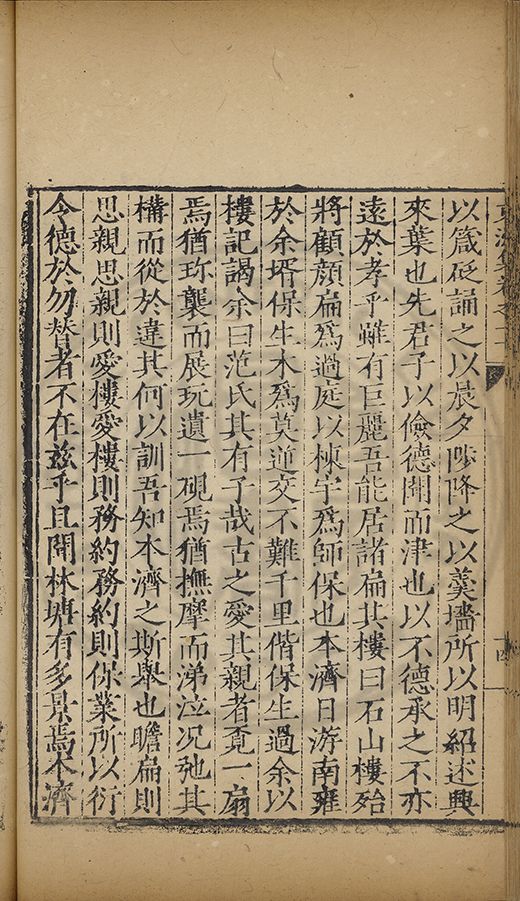 以箴砭誦之以晨夕陟降之以羹墻所以明紹述興
來葉也先君子以儉德開而津也以不德承之不亦
遠於孝乎雖有巨麗吾能居諸扁其樓曰石山樓殆
將顧顔扁爲過庭以棟宇爲師保也本濟日游南雍
於余壻保生木爲莫逆交不難千里偕保生過余以
樓記謁余曰范氏其有子哉古之愛其親者覔一扇
焉猶珎襲而展玩遺一硯焉猶撫摩而涕泣况弛其
構而從於違其何以訓吾知本濟之斯舉也瞻扁則
思親思親則愛樓愛樓則務約務約則保業所以衍
令德於勿替者不在兹乎且開林塘有多景焉本濟